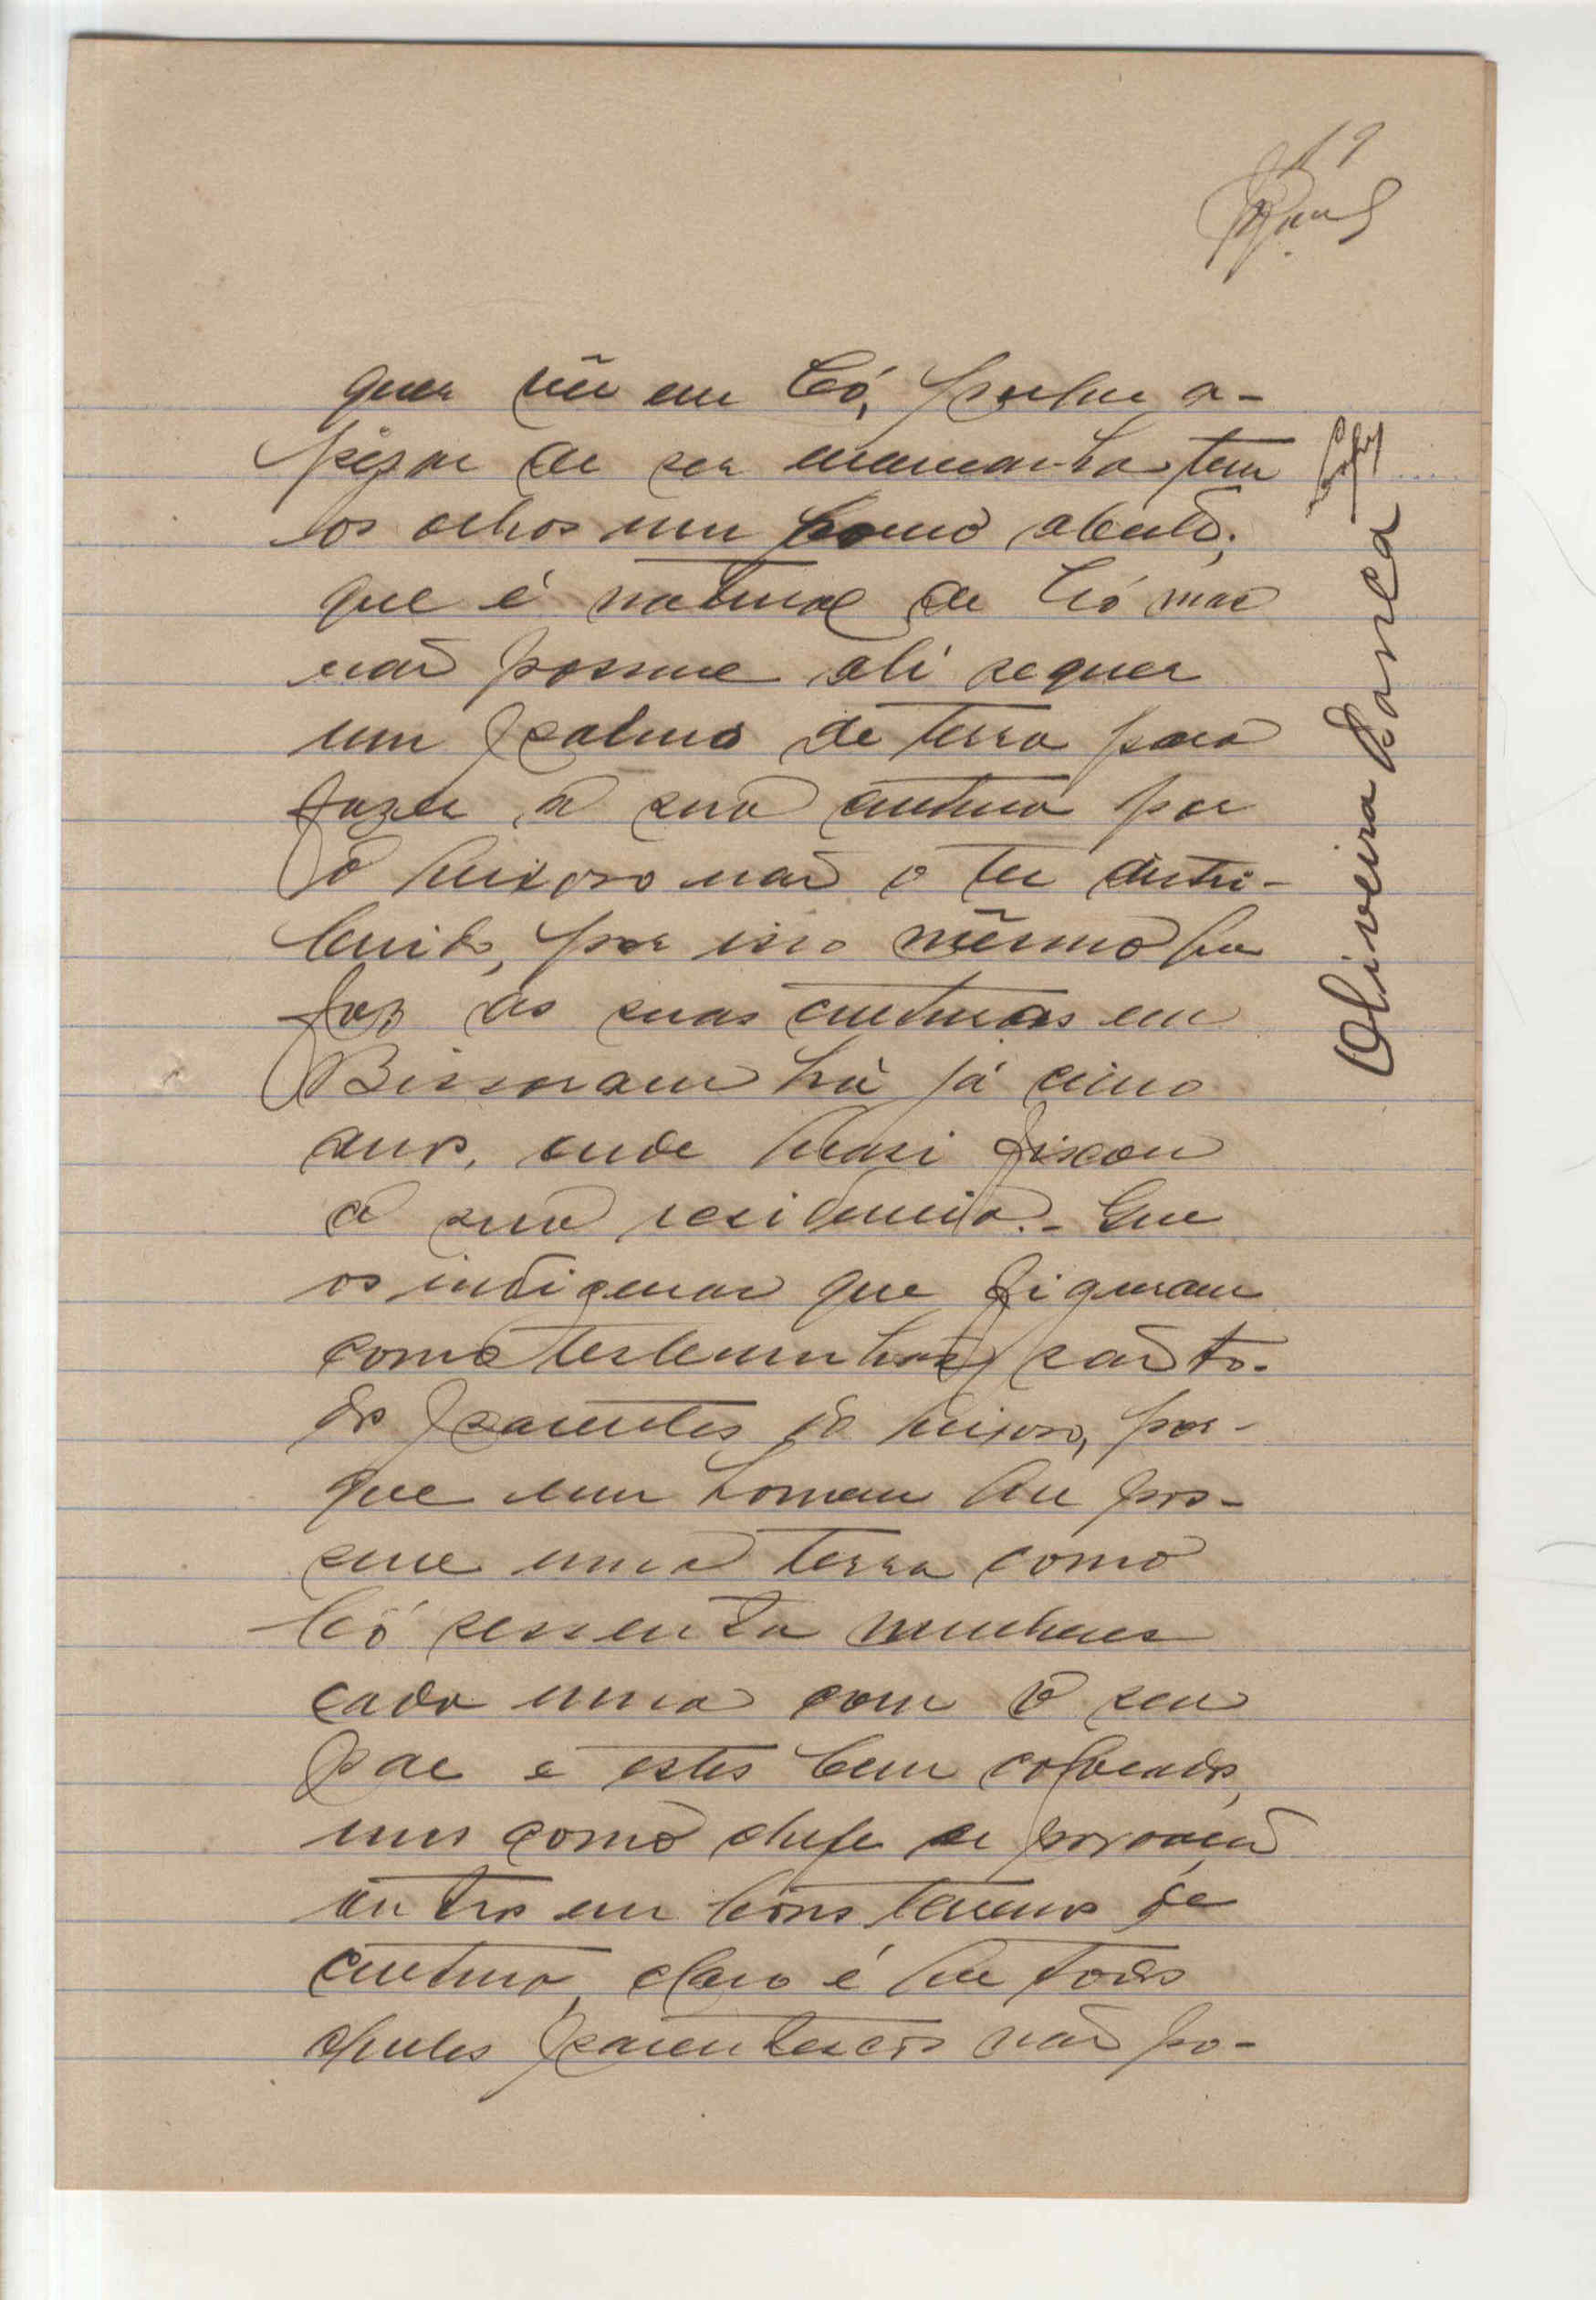 19
quer vêr em Có, porque a-
pezar de ser mancanha tem
os olhos um pouco abertos;
que é natural de Có mas
não possue ali sequer
um palmo de terra para
fazer a sua cultura por
o regulo não o ter distri-
buido, por isso mêsmo que
faz as suas culturas em
Bissoram há já cinco
anos, onde quasi fixou
a sua residencia.- Que
os indigenas que figuram
como testemunhas, são to-
dos parentes do regulo, por-
que um homem que pos-
sue uma terra como
Có sessenta mulheres
cada uma com o seu
pae e estes bem colocados,
uns como chefe de povoação
outros em bons terenos de
cultura, claro é que todos
aqueles parentescos não po-
Oliveira Sanca